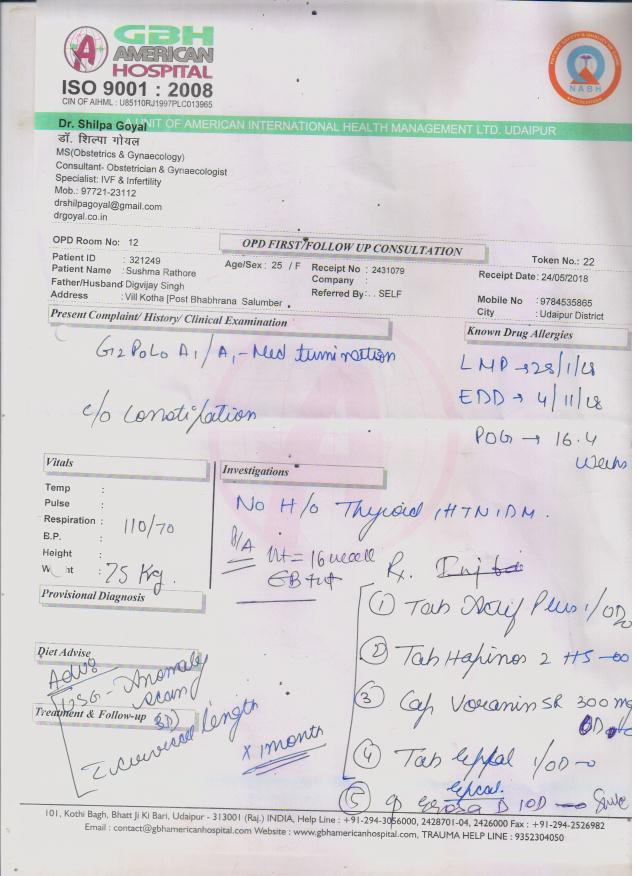 GBH
AMERICAN
HOSPITAL
ISO 9001 : 2008
CIN OF AIHML : U85110RJ1997PLC013965
NABH
A UNIT OF AMERICAN INTERNATIONAL HEALTH MANAGEMENT LTD. UDAIPUR
Dr. Shilpa Goyal
डॉ. शिल्पा गोयल
MS(Obstetrics & Gynaecology)
Consultant- Obstetrician & Gynaecologist
Specialist: IVF & Infertility
Mob.: 97721-23112
drshilpagoyal@gmail.com
drgoyal.co.in
OPD Room No: 12
OPD FIRST/FOLLOW UP CONSULTATION
Token No.: 22
Patient ID : 321249
Age/Sex : 25 / F
Receipt No : 2431079
Receipt Date: 24/05/2018
Patient Name : Sushma Rathore
Company :
Father/Husband Digvijay Singh
Referred By: . . SELF
Mobile No : 9784535865
Address : Vill Kotha [Post Bhabhrana Salumber
City : Udaipur District
Present Complaint/ History/ Clinical Examination
Known Drug Allergies
G2P0L0A1/A1-Med
LMP → 28/1/18
EDD → 4/11/18
c/o constipation
POG → 16.4
weeks
Vitals
Investigations
Temp :
Pulse :
Respiration :
B.P. : 110/70
Height :
75 Kg.
No H/o Thyroid, HTN, DM.
P/A
Rx.
Provisional Diagnosis
① Tab Plus 1/OD
② Tab 2 HS
③ Cap SR 300 mg
OD
④ Tab 1/OD
⑤
Diet Advise
Adv:
USG - Anomaly
scan
3D
Treatment & Follow-up
length
x 1 month
101, Kothi Bagh, Bhatt Ji Ki Bari, Udaipur - 313001 (Raj.) INDIA, Help Line : +91-294-3056000, 2428701-04, 2426000 Fax : +91-294-2526982
Email : contact@gbhamericanhospital.com Website : www.gbhamericanhospital.com, TRAUMA HELP LINE : 9352304050